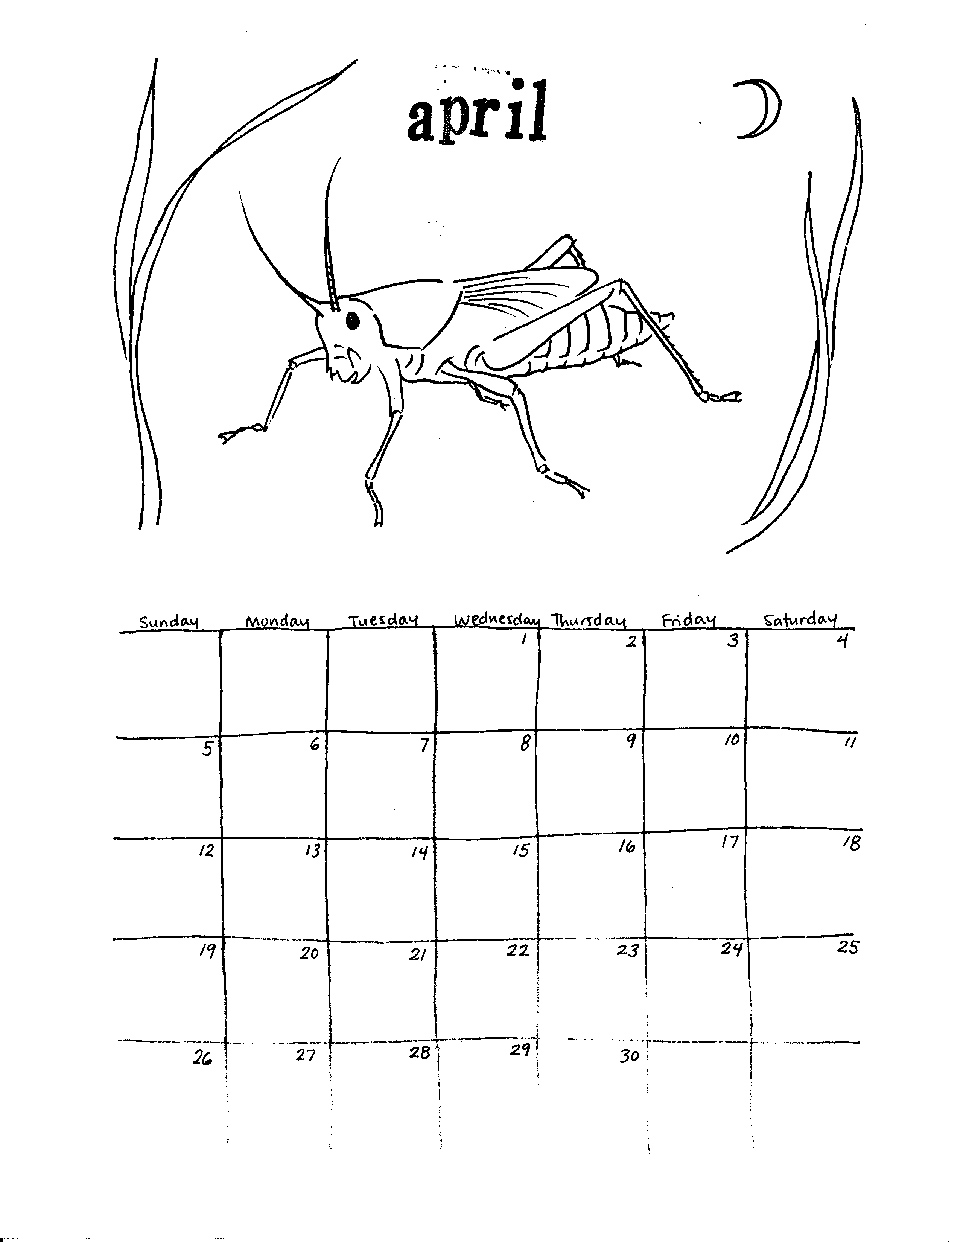 april
Sunday Monday Tuesday Wednesday Thursday Friday Saturday
1 2 3 4
5 6 7 8 9 10 11
12 13 14 15 16 17 18
19 20 21 22 23 24 25
26 27 28 29 30